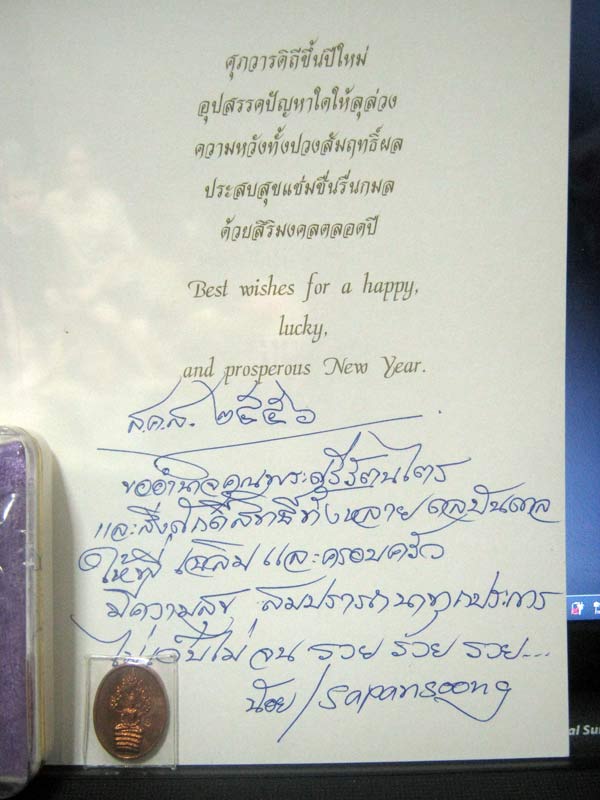 ศุภวารดิถีขึ้นปีใหม่
อุปสรรคปัญหาใดให้ลุล่วง
ความหวังทั้งปวงสัมฤทธิ์ผล
ประสบสุขแช่มชื่นรื่นกมล
ด้วยสิริมงคลตลอดปี
Best wishes for a happy,
lucky,
and prosperous New Year.
ส.ค.ส. ๒๕๕๖
ขออำนาจคุณพระศรีรัตนไตร
และสิ่งศักดิ์สิทธิ์ทั้งหลาย ดลบันดาล
ให้พี่ เฉลิม และครอบครัว
มีความสุข สมปรารถนาทุกประการ
ไม่เจ็บไม่จน รวย รวย รวย...
น้อย / sapansoong
al Su